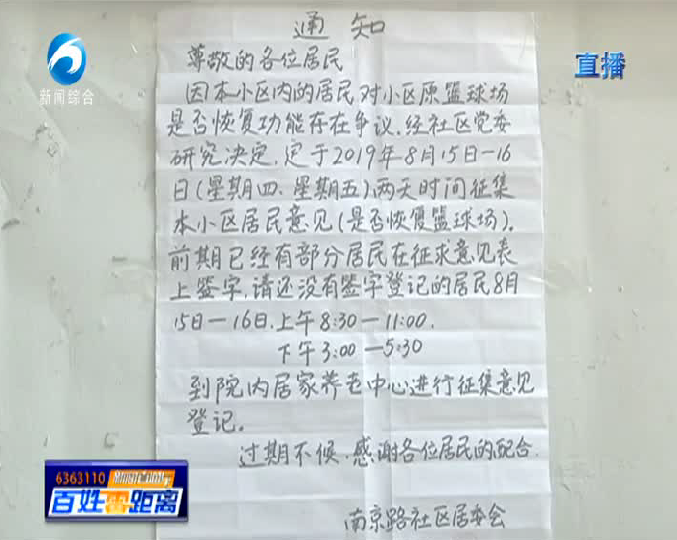 通知
尊敬的各位居民
因本小区内的居民对小区原篮球场
是否恢复功能存在争议.经社区党委
研究决定,定于2019年8月15日—16
日(星期四、星期五),两天时间征集
本小区居民意见(是否恢复篮球场)。
前期已经有部分居民在征求意见表
上签字,请还没有签字登记的居民8月
15日—16日.上午8:30—11:00.
下午3:00—5:30
到院内居家养老中心进行征集意见
登记。
过期不候.感谢各位居民的配合.
南京路社区居委会
新闻综合
直播
6363110
百姓零距离